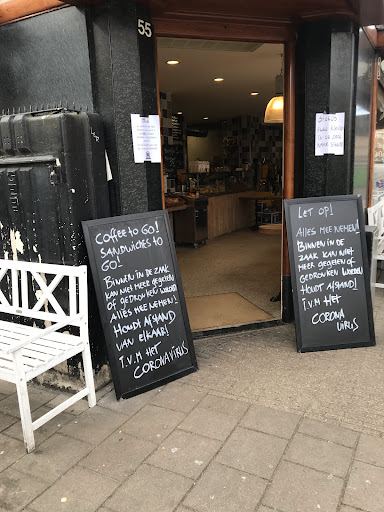 55
COFFEE TO GO!
SANDWICHES TO
GO!
BINNEN IN DE ZAAK
KAN NIET MEER
GEGETEN OF
GEDRONKEN WORDEN
ALLES MEE NEMEN!
HOUDT AFSTAND
VAN ELKAAR!
I.V.M HET
CORONAVIRUS
LET OP!
ALLES MEE NEMEN!
BINNEN IN DE
ZAAK KAN NIET
MEER GEGETEN OF
GEDRONKEN WORDEN
HOUDT AFSTAND!
I.V.M HET
CORONA
VIRUS